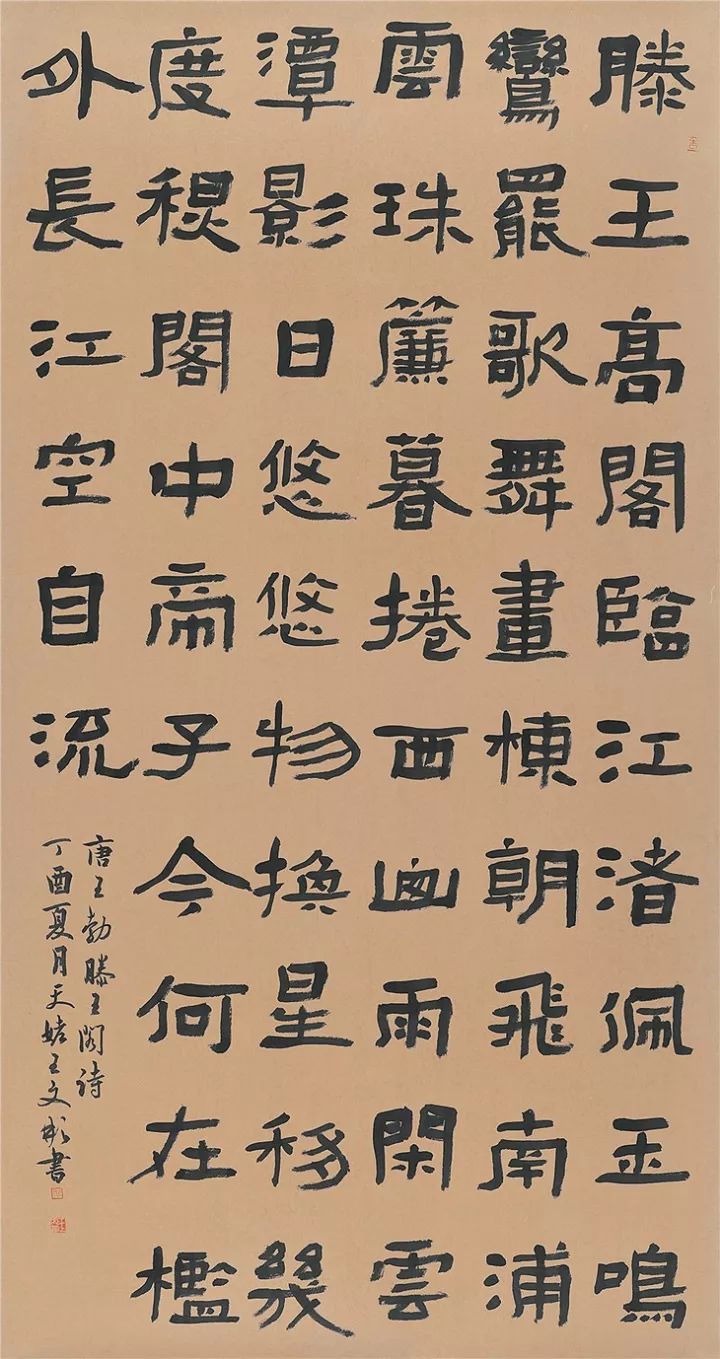 滕王高閣臨江渚佩玉鳴
鸞罷歌舞畫棟朝飛南浦
雲珠簾暮捲西山雨閑雲
潭影日悠悠物換星移幾
度秋閣中帝子今何在檻
外長江空自流
唐王勃滕王閣詩
丁酉夏月天姥王文彬書